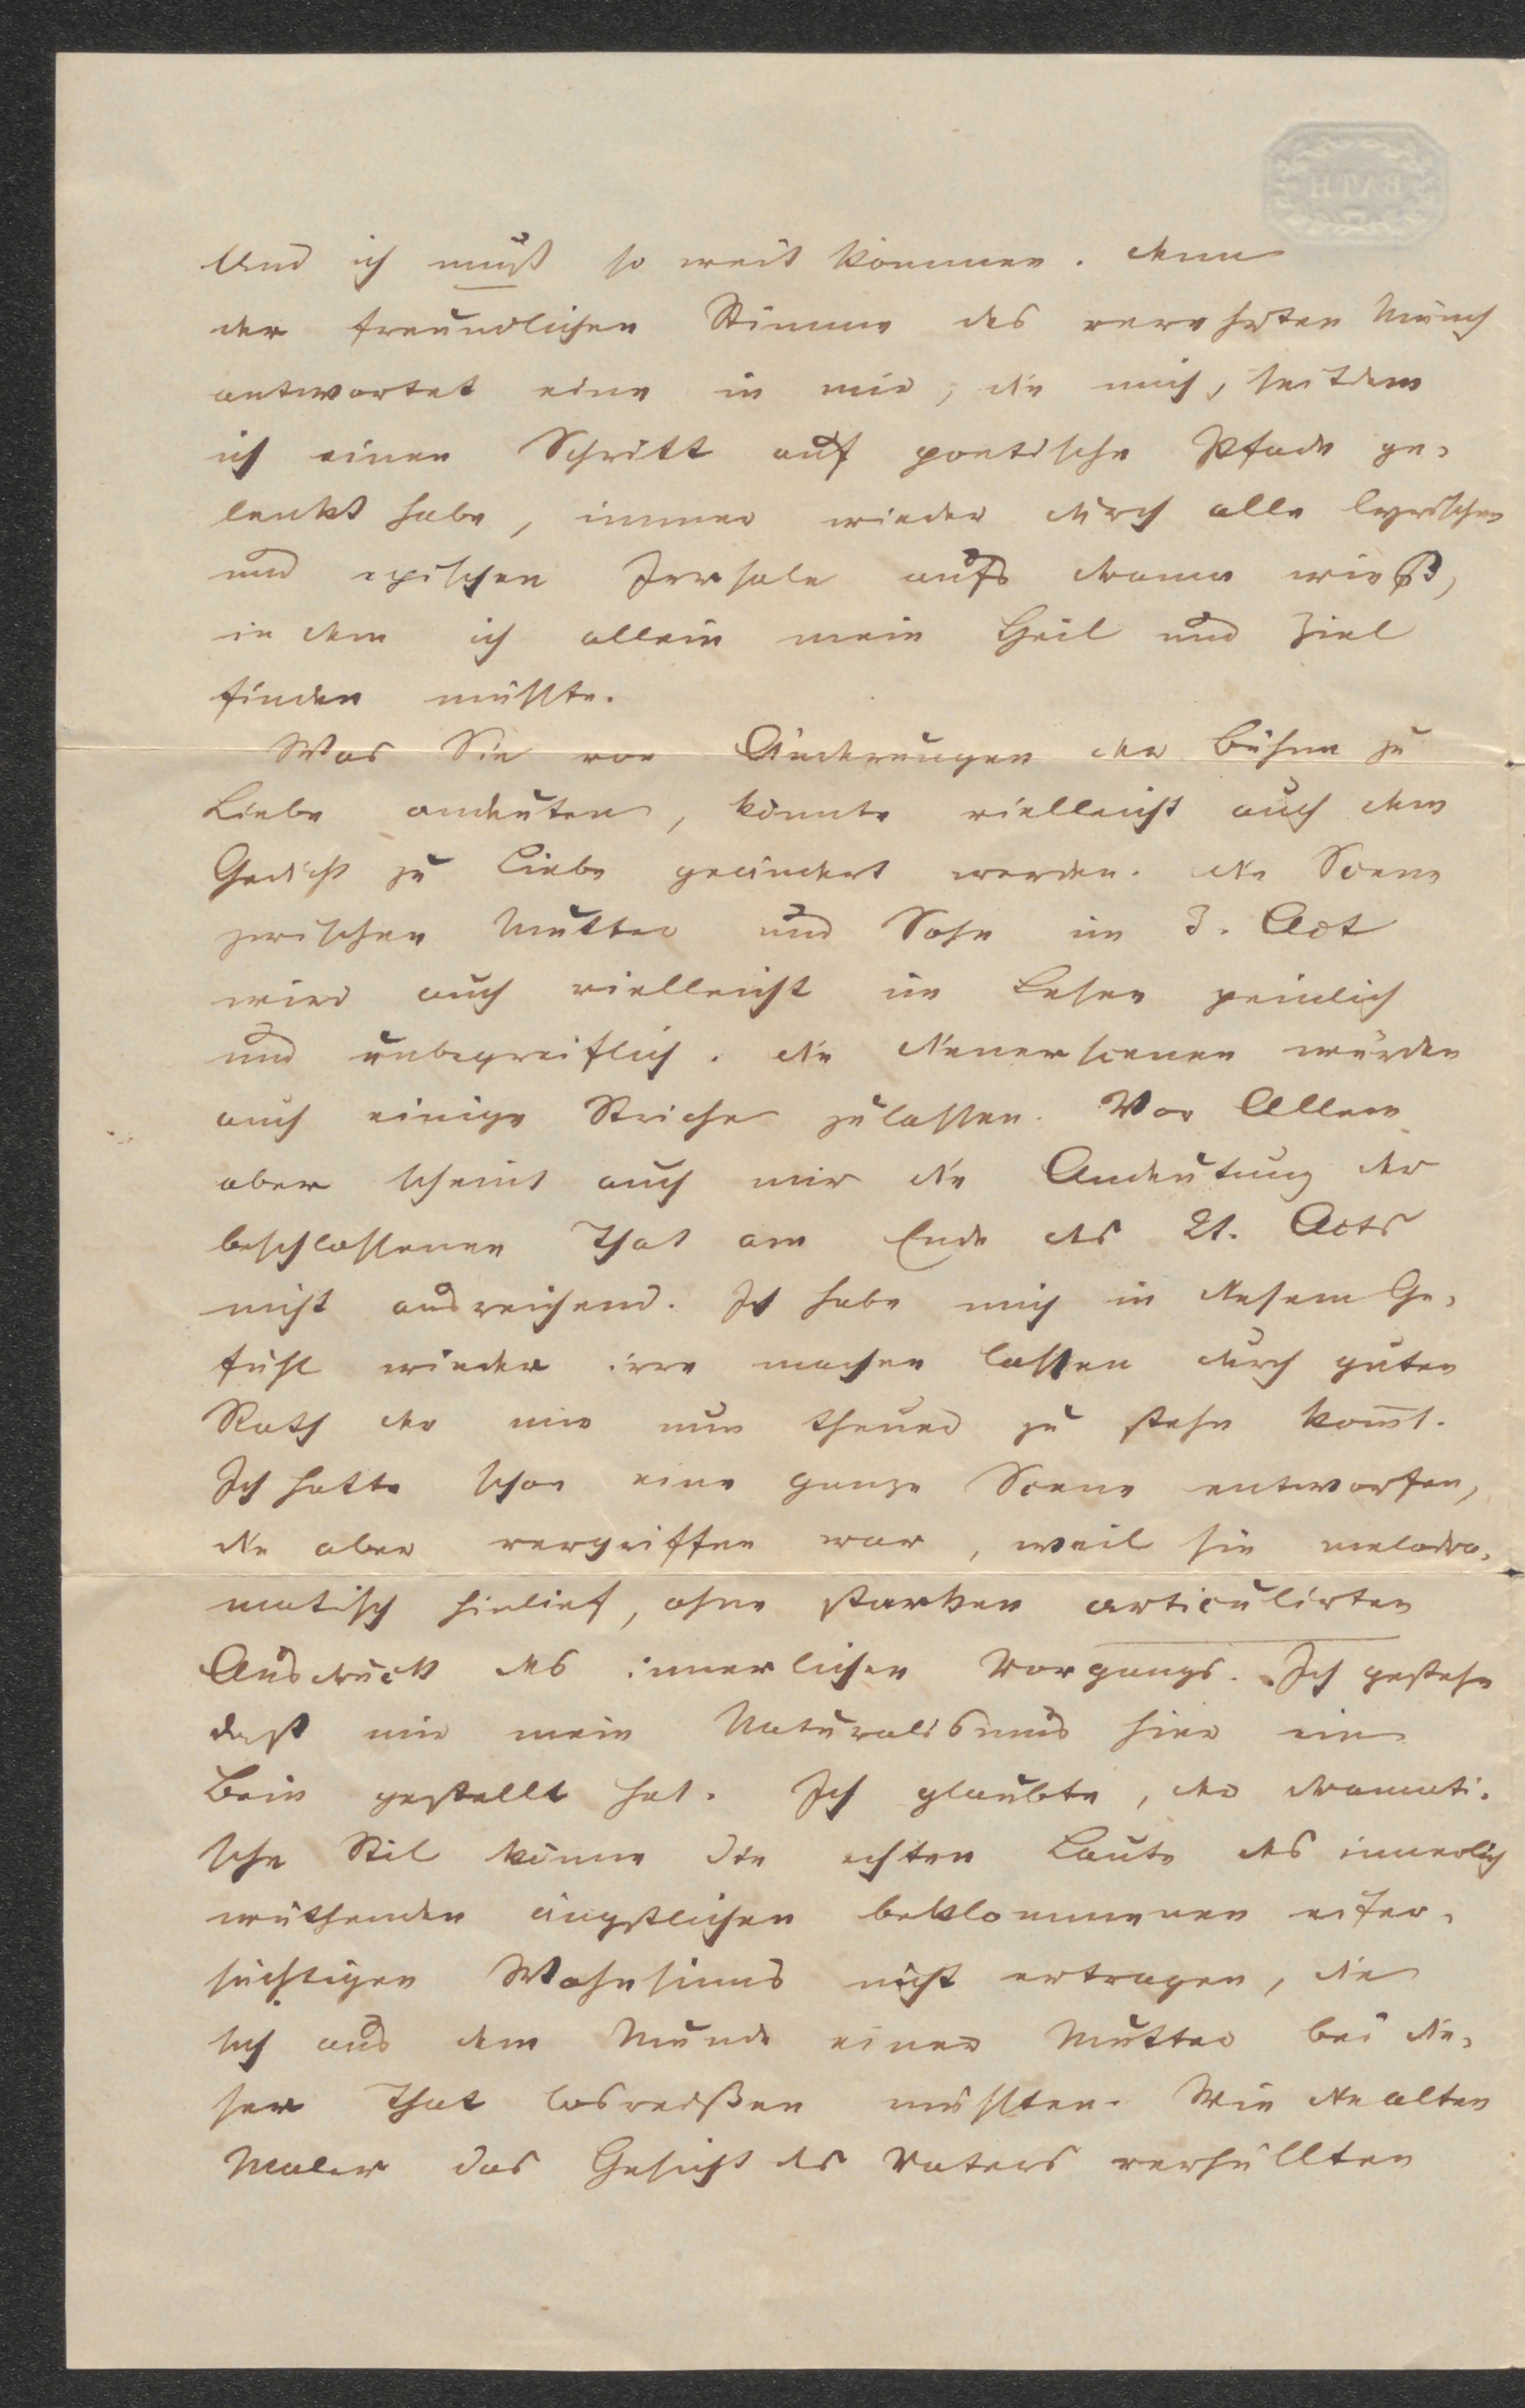 Und ich muß so weit kommen. Denn
der freundlichen Stimme des verehrten Münch
antwortet eine in mir, die mich, seitdem
ich einen Schritt auf poetische Pfade ge-
lenkt habe, immer wieder durch alle lyrischen
und epischen Irrsale aufs Drama wieß,
in dem ich allein mein Heil und Ziel
finden müsste.
Was Sie von Änderungen der Bühne zu
Liebe andeuten, könnte vielleicht auch dem
Gedicht zu Liebe geändert werden. Die Scene
zwischen Mutter und Sohn im 3. Act
wird auch vielleicht im Lesen peinlich
und unbegreiflich. Die Dienerscenen würden
auch einige Striche zulassen. Vor Allem
aber scheint auch mir die Andeutung der
beschlossenen That am Ende des 21. Acts
nicht ausreichend. Ich habe mich in diesem Ge-
fühl wieder irre machen lassen durch guten
Rath der mir nun theuer zu stehn kom̅t.
Ich hatte schon eine ganze Scene entworfen,
die aber vergriffen war, weil sie melodra-
matisch hinlief, ohne starken articulirten
Ausdruck des innerlichen Vorgangs. Ich gestehe
daß mir mein Naturalismus hier ein
Bein gestellt hat. Ich glaubte, der dramati-
sche Stil könne die echten Laute des innerlich
wüthenden ängstlichen beklommenen eifer-
süchtigen Wahnsinns nicht ertragen, die
sich aus dem Munde einer Mutter bei die-
ser That losreißen müssten. Wie die alten
Maler das Gesicht des Vaters verhüllten